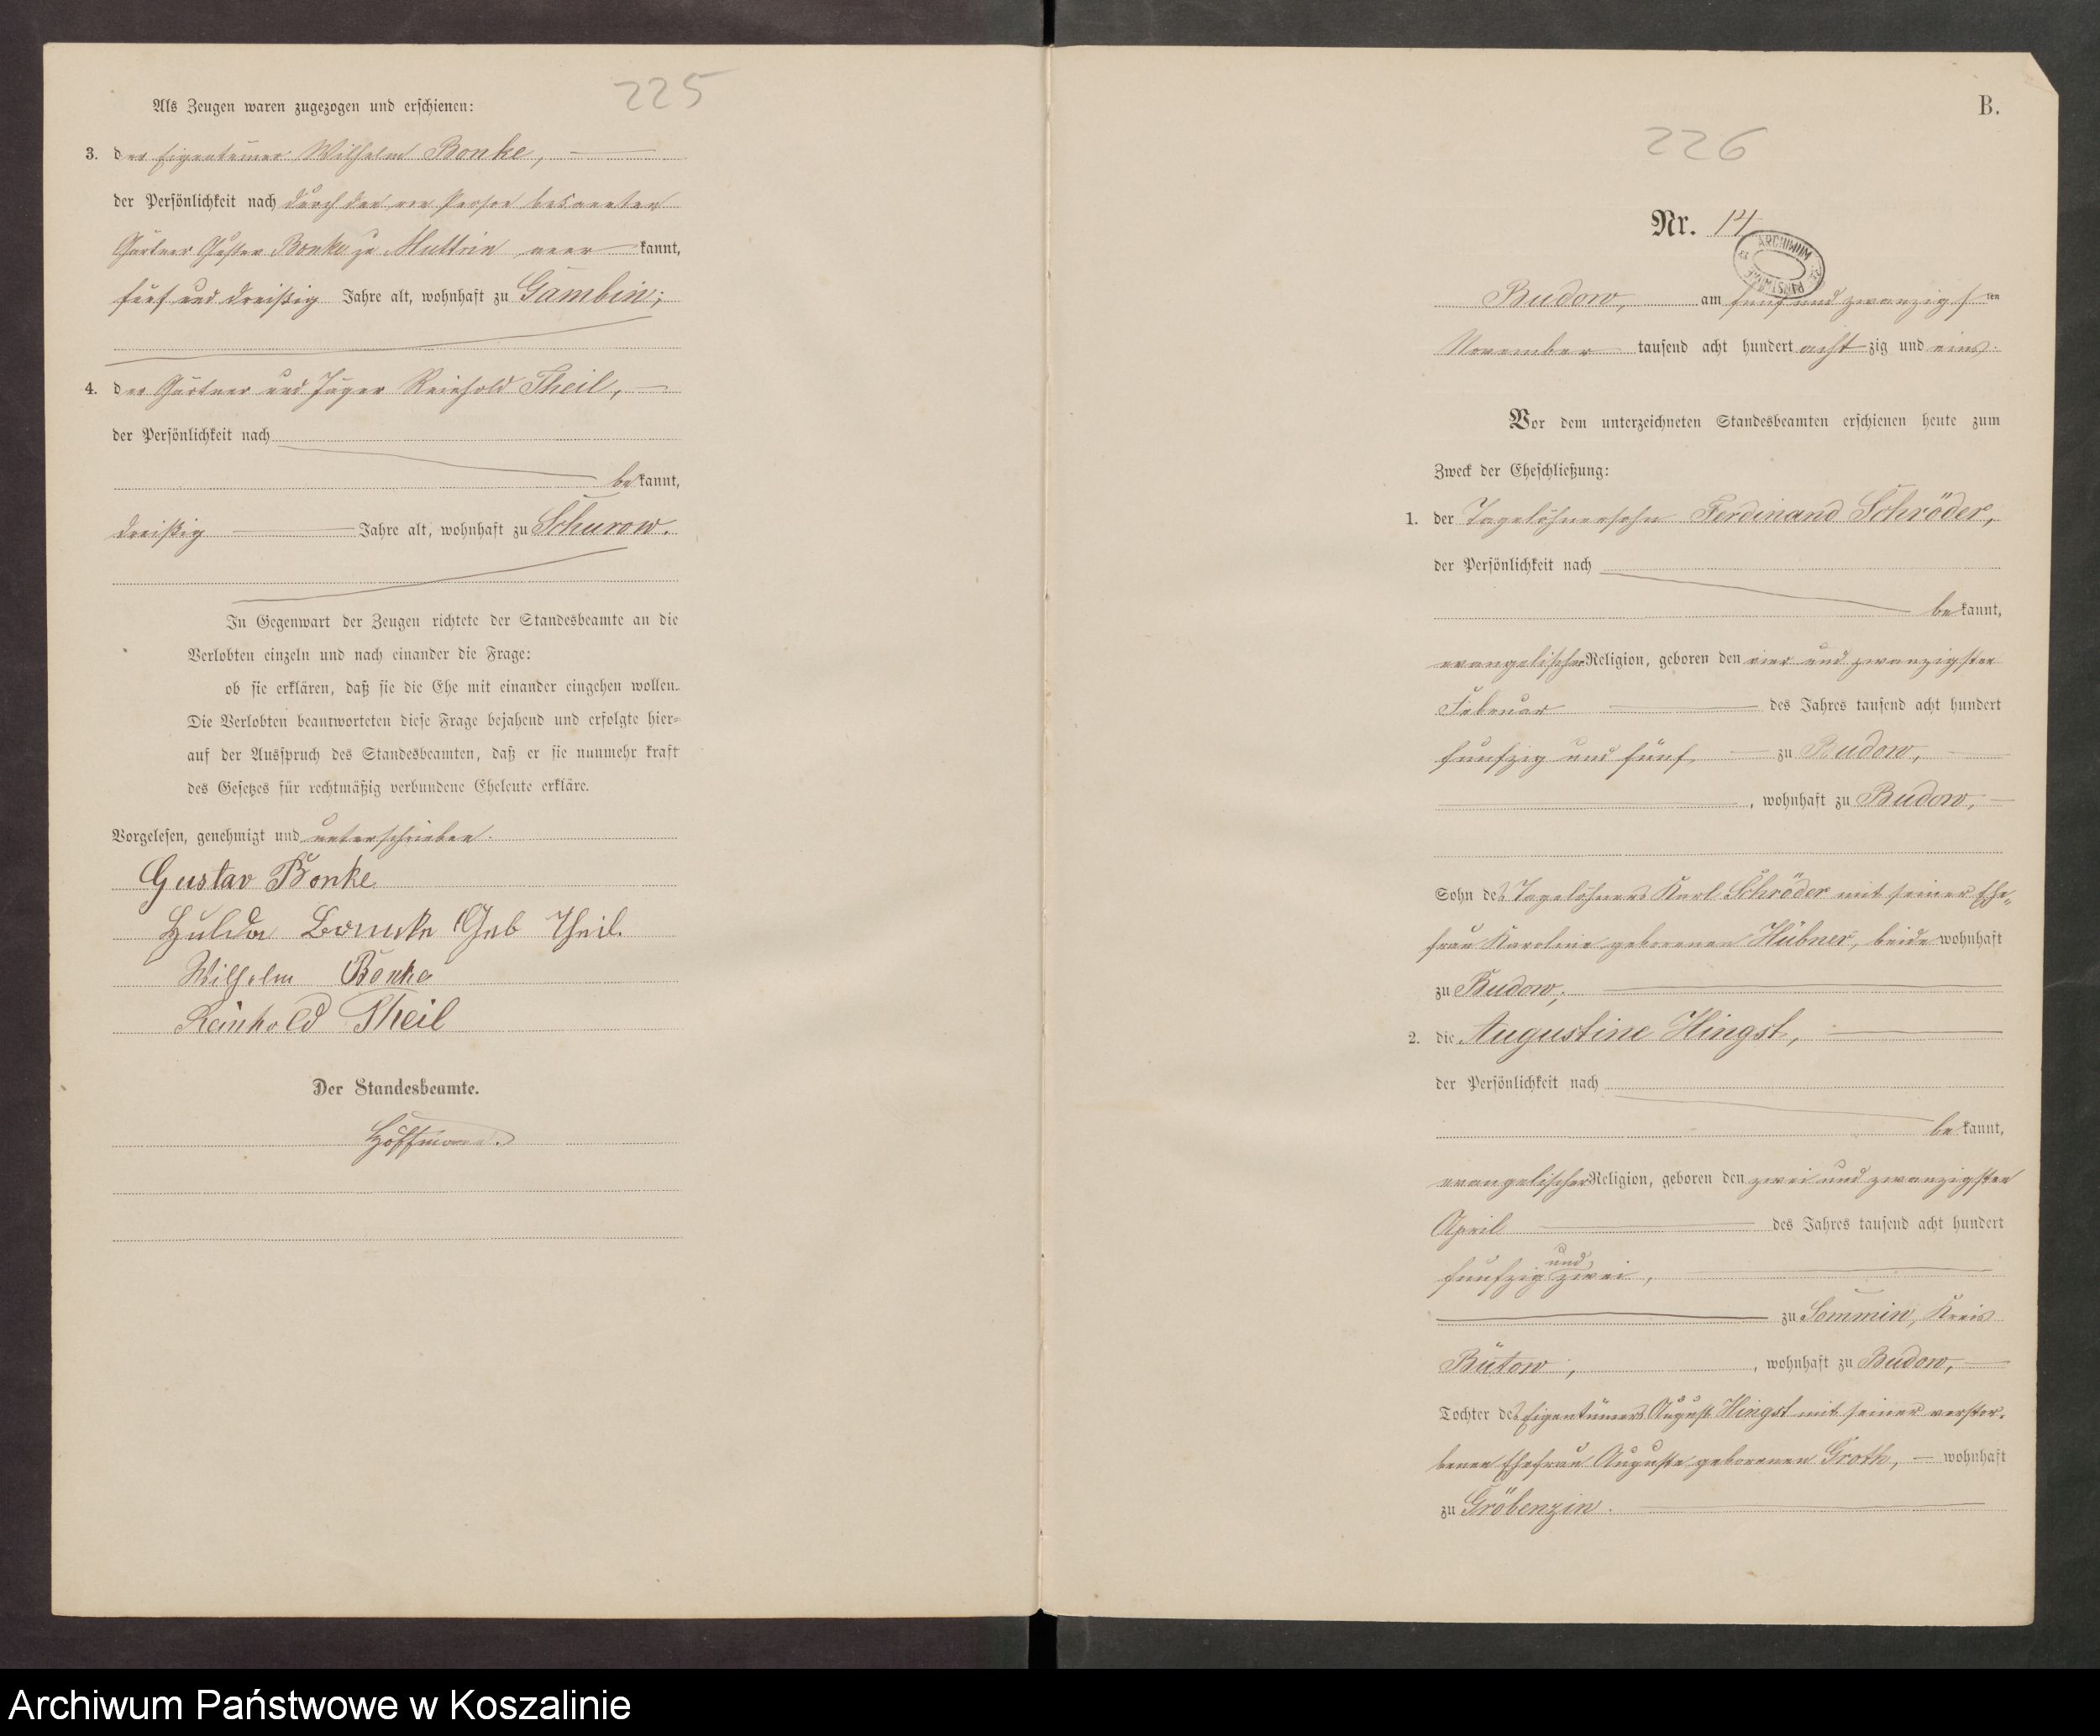 225
Als Zeugen waren zugezogen und erschienen:
3. der Eigentümer Wilhelm Bonke,
der Persönlichkeit nach durch den von Person bekannten
Gärtner Gustav Bonke zu Muttrin aner kannt,
fünf und dreißig Jahre alt, wohnhaft zu Gambin;
4. der Gärtner und Jäger Reinhold Theil,
der Persönlichkeit nach
be kannt,
dreißig Jahre alt, wohnhaft zu Schurow.
In Gegenwart der Zeugen richtete der Standesbeamte an die
Verlobten einzeln und nach einander die Frage:
ob sie erklären, daß sie die Ehe mit einander eingehen wollen.
Die Verlobten beantworteten diese Frage bejahend und erfolgte hier-
auf der Ausspruch des Standesbeamten, daß er sie nunmehr kraft
des Gesetzes für rechtmäßig verbundene Eheleute erkläre.
Vorgelesen, genehmigt und unterschrieben.
Gustav Bonke
Hulda Geb Theil.
Wilhelm Bonke
Reinhold Theil
Der Standesbeamte.
Hoffmann.
B.
226
Nr. 14
ARCHIWUM PAŃSTWOWE
Budow, am fünf und zwanzigsten
November tausend acht hundert acht zig und eins.
Vor dem unterzeichneten Standesbeamten erschienen heute zum
Zweck der Eheschließung:
1. der Tagelöhnersohn Ferdinand Schröder,
der Persönlichkeit nach
be kannt,
evangelischer Religion, geboren den vier und zwanzigsten
Februar des Jahres tausend acht hundert
funfzig und fünf zu Budow,
, wohnhaft zu Budow,
Sohn des Tagelöhners Karl Schröder mit seiner Ehe-
frau Karoline geborenen Hübner, beide wohnhaft
zu Budow,
2. die Augustine Hingst,
der Persönlichkeit nach
be kannt,
evangelischer Religion, geboren den zwei und zwanzigsten
April des Jahres tausend acht hundert
funfzig und zwei,
zu Sommin, Kreis
Bütow, , wohnhaft zu Budow,
Tochter des Eigentümers August Hingst mit seiner verstor-
benen Ehefrau Auguste geborenen Groth, wohnhaft
zu Gröbenzin.
Archiwum Państwowe w Koszalinie